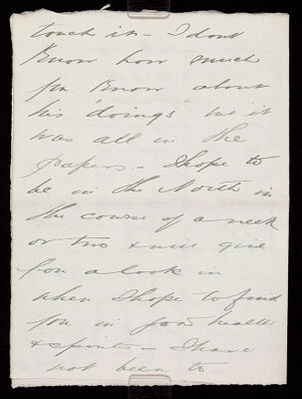 touch it - I dont
Know how much
you Know about
his "doings" but it
was all in the
papers - I hope to
be in the North in
the course of a week
or two & will give
you a look in
when I hope to find
you in good health
& spirits - I have
not been to